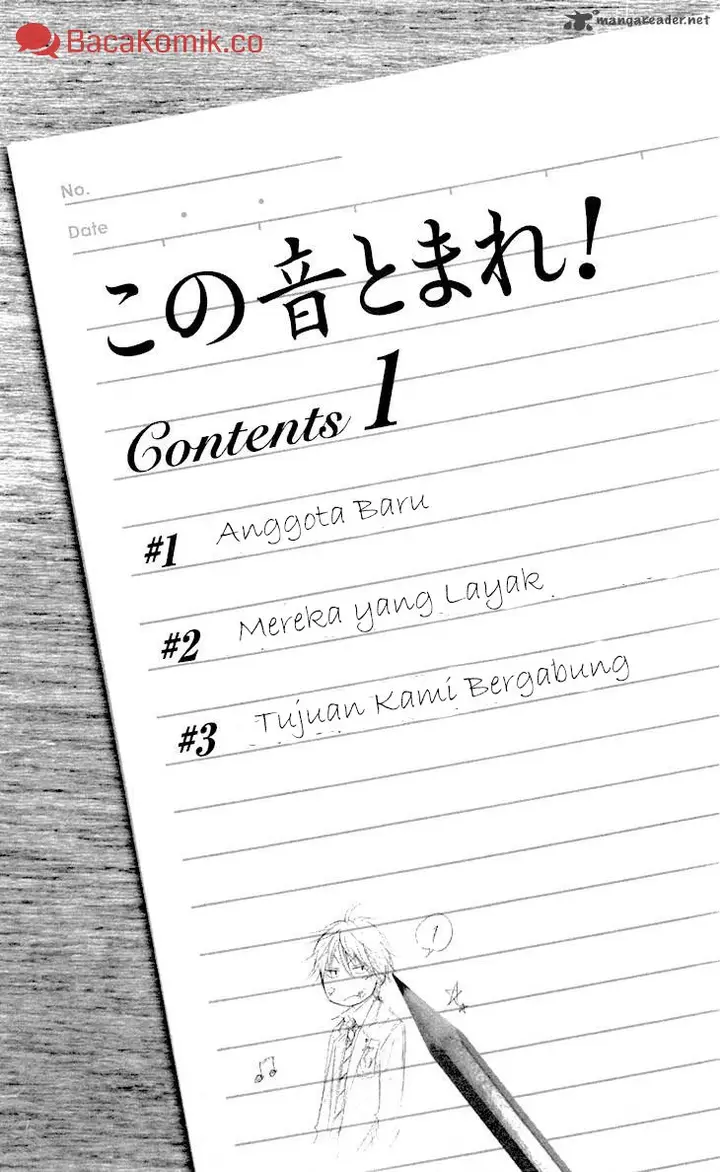 BacaKomik.co
mangareader.net
No.
Date
この音とまれ!
Contents 1
#1 Anggota Baru
#2 Mereka yang Layak
#3 Tujuan Kami Bergabung
!